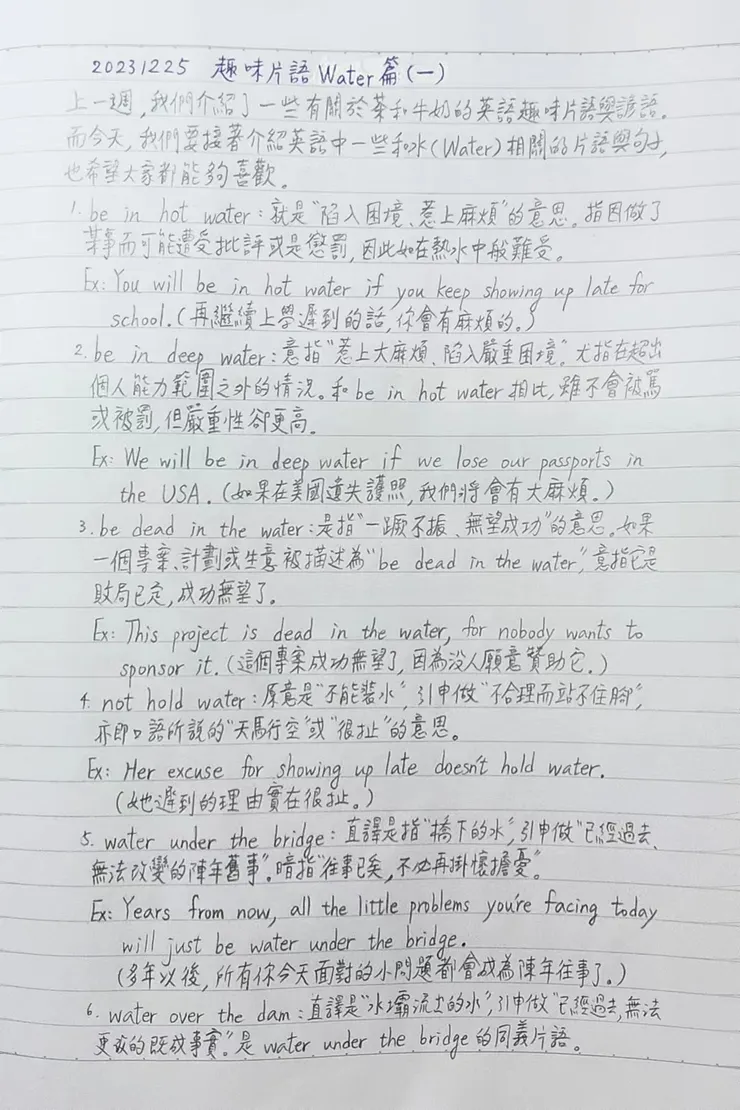 20231225 趣味片語Water篇(一)
上一週,我們介紹了一些有關於茶和牛奶的英語趣味片語與諺語。
而今天,我們要接著介紹英語中一些和水(Water)相關的片語與句子,
也希望大家都能夠喜歡。
1. be in hot water:就是"陷入困境、惹上麻煩"的意思。指因做了
某事而可能遭受批評或是懲罰,因此如在熱水中般難受。
Ex: You will be in hot water if you keep showing up late for
school.(再繼續上學遲到的話,你會有麻煩的。)
2. be in deep water:意指"惹上大麻煩、陷入嚴重困境"。尤指在超出
個人能力範圍之外的情況。和be in hot water相比,雖不會被罵
或被罰,但嚴重性卻更高。
Ex: We will be in deep water if we lose our passports in
the USA.(如果在美國遺失護照,我們將會有大麻煩。)
3. be dead in the water:是指"一蹶不振、無望成功"的意思。如果
一個專案、計劃或生意被描述為"be dead in the water",意指它是
敗局已定,成功無望了。
Ex: This project is dead in the water, for nobody wants to
sponsor it.(這個專案成功無望了,因為沒人願意贊助它。)
4. not hold water:原意是"不能裝水",引申做"不合理而站不住腳",
亦即口語所說的"天馬行空"或"很扯"的意思。
Ex: Her excuse for showing up late doesn't hold water.
(她遲到的理由實在很扯。)
5. water under the bridge:直譯是指"橋下的水",引申做"已經過去、
無法改變的陳年舊事"。暗指"往事已矣,不必再掛懷擔憂"。
Ex: Years from now, all the little problems you're facing today
will just be water under the bridge.
(多年以後,所有你今天面對的小問題都會成為陳年往事了。)
6. water over the dam:直譯是"水壩流出的水",引申做"已經過去,無法
更改的既成事實"。是water under the bridge的同義片語。